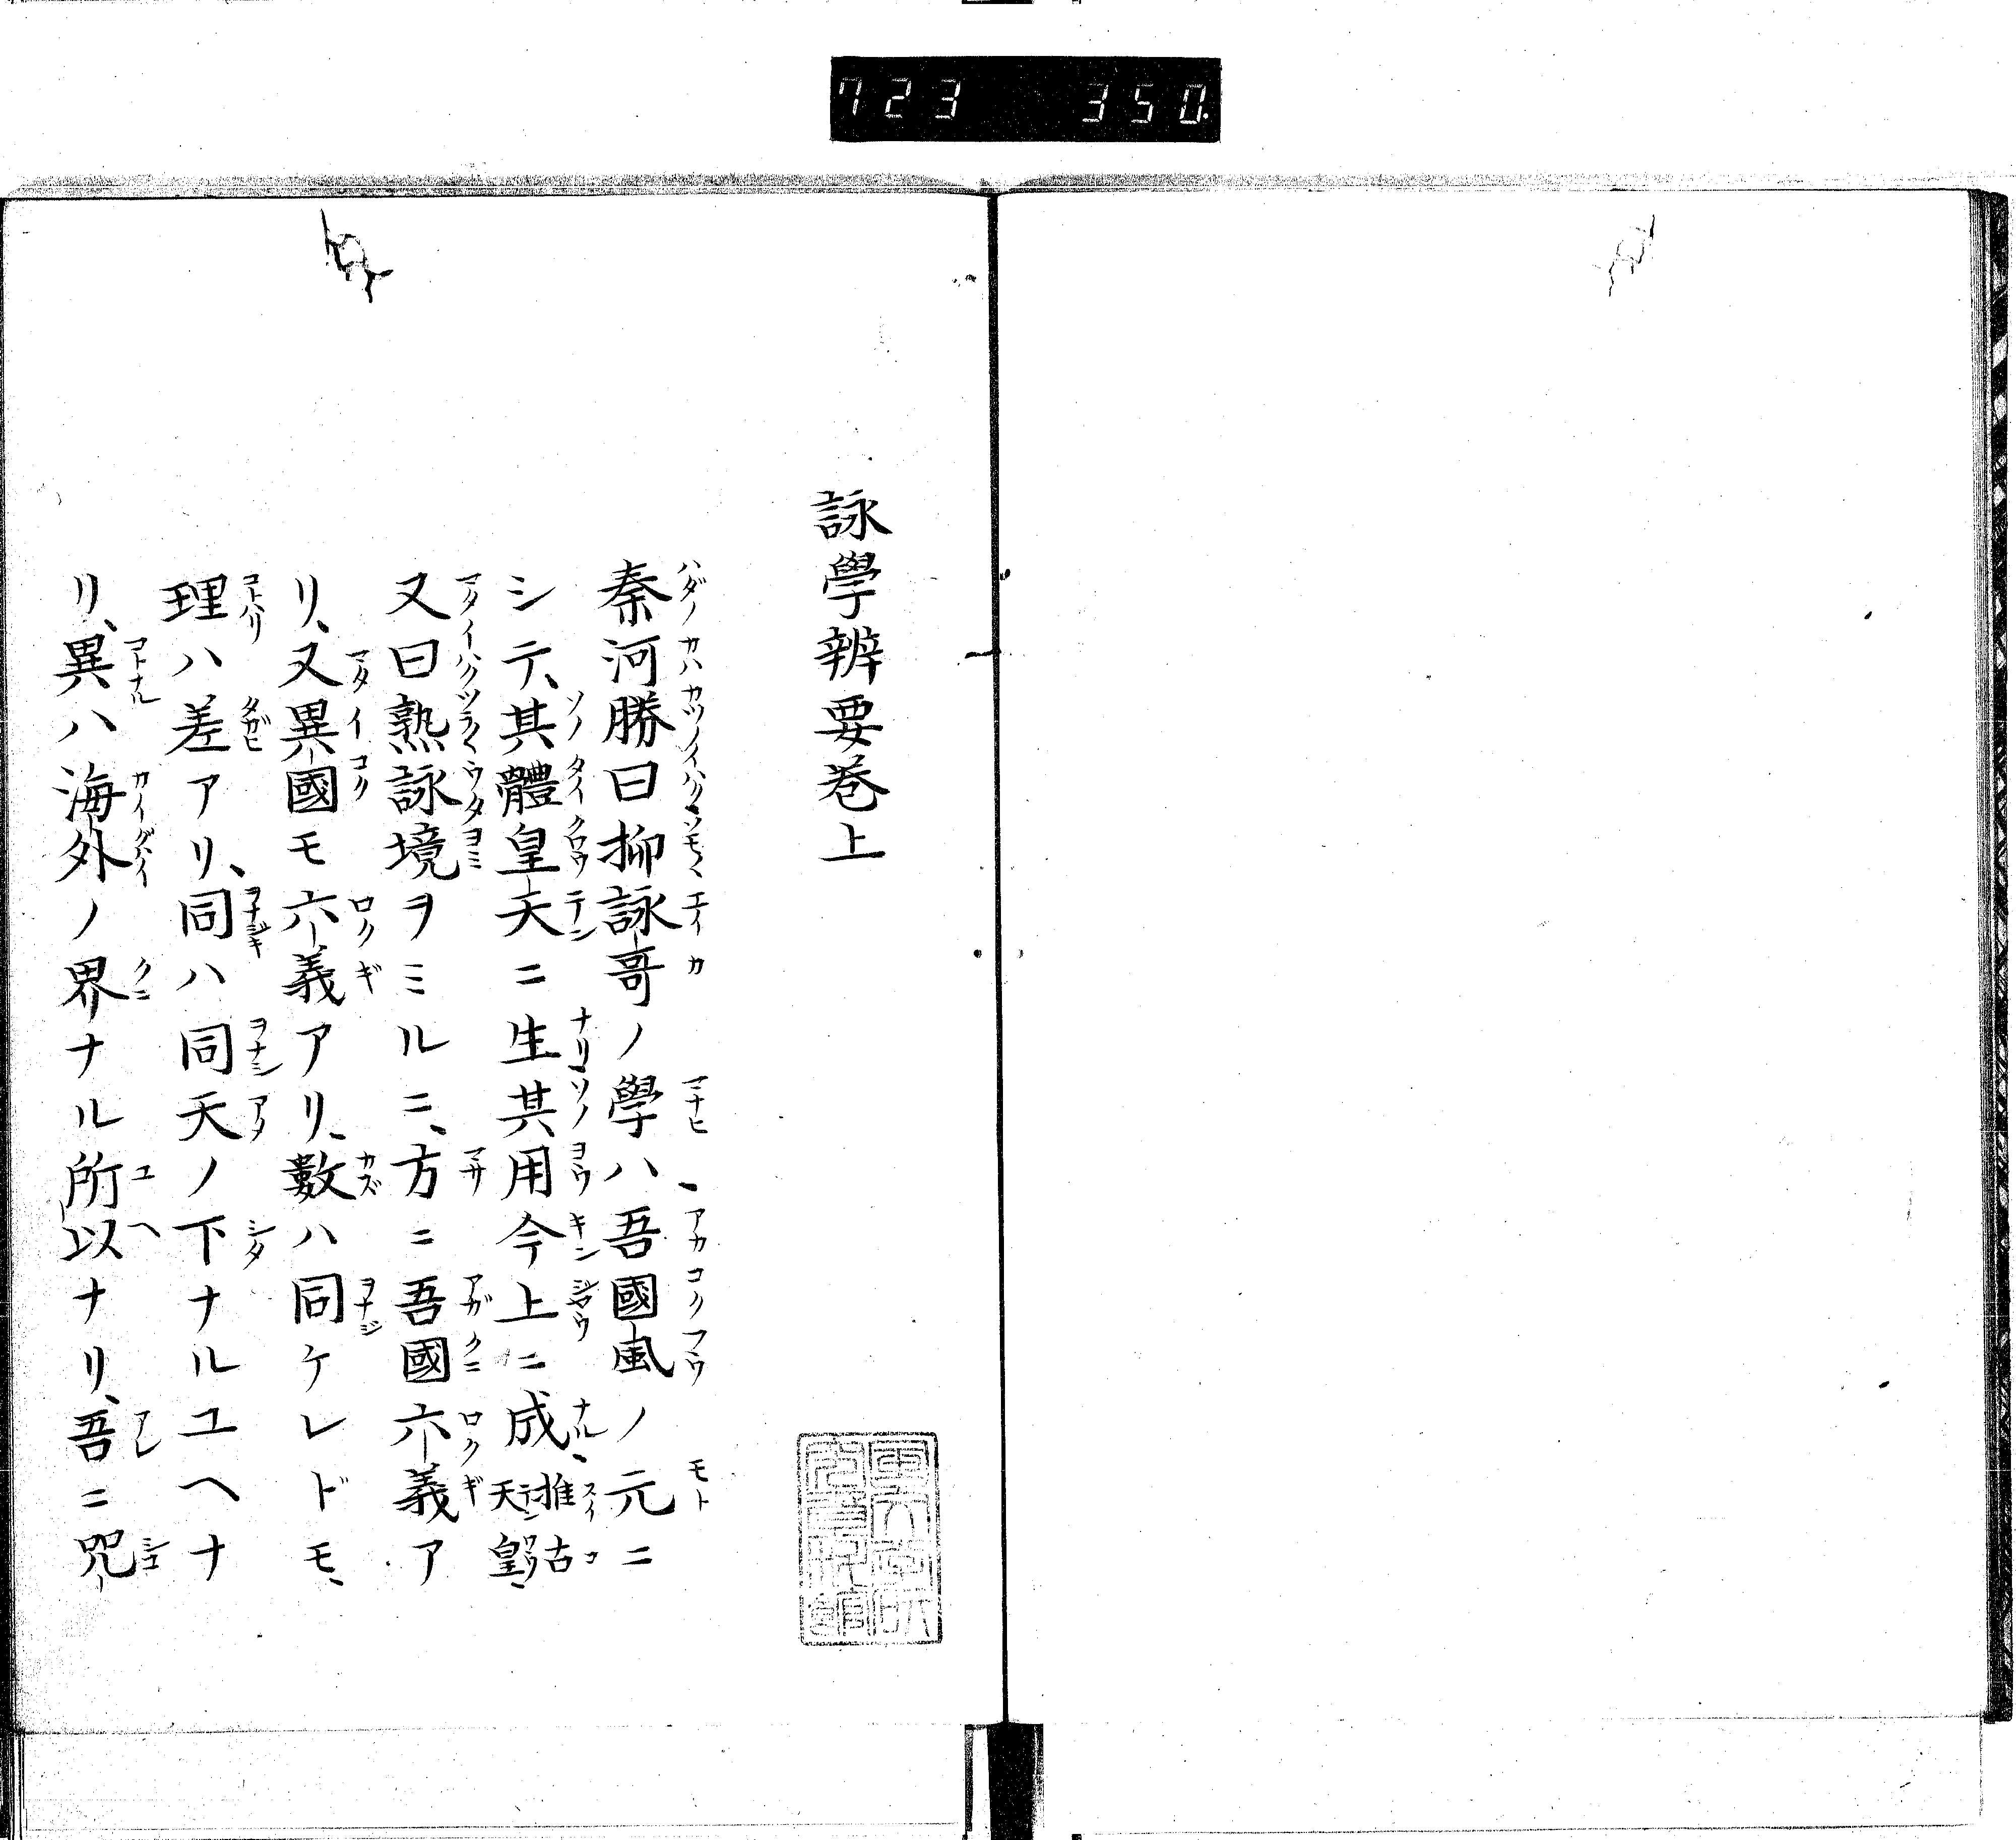 723 350
詠學辨要巻上
秦河勝曰抑詠哥ノ學ハ吾國風ノ元ニ
シテ、其體皇天ニ生其用今上ニ成、推古天皇、
又曰熟詠境ヲミルニ、方ニ吾國六義ア
リ、又異國モ六義アリ、數ハ同ケレドモ、
理ハ差アリ、同ハ同天ノ下ナルユヘナ
リ、異ハ海外ノ界ナル所以ナリ、吾ニ咒